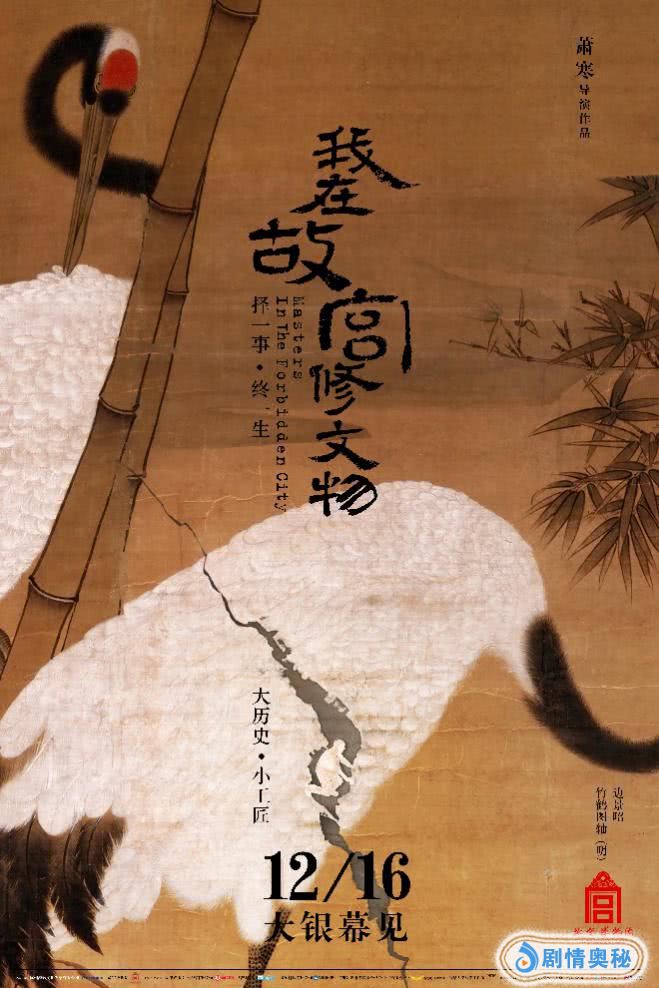 萧寒导演作品
我在故宫修文物
Masters
In The Forbidden City
择一事·终一生
大历史·小工匠
边景昭
竹鹤图轴(明)
12/16
大银幕见
剧情奥秘